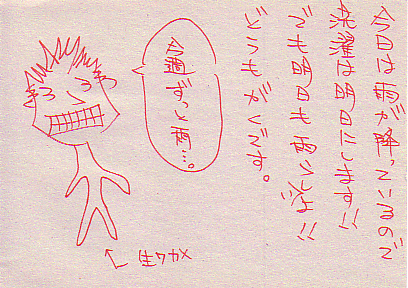 今日は雨が降っているので
洗濯は明日にします!!
でも明日も雨らしいよ!!
どうもがくです。
今週ずっと雨…。
生ワカメ